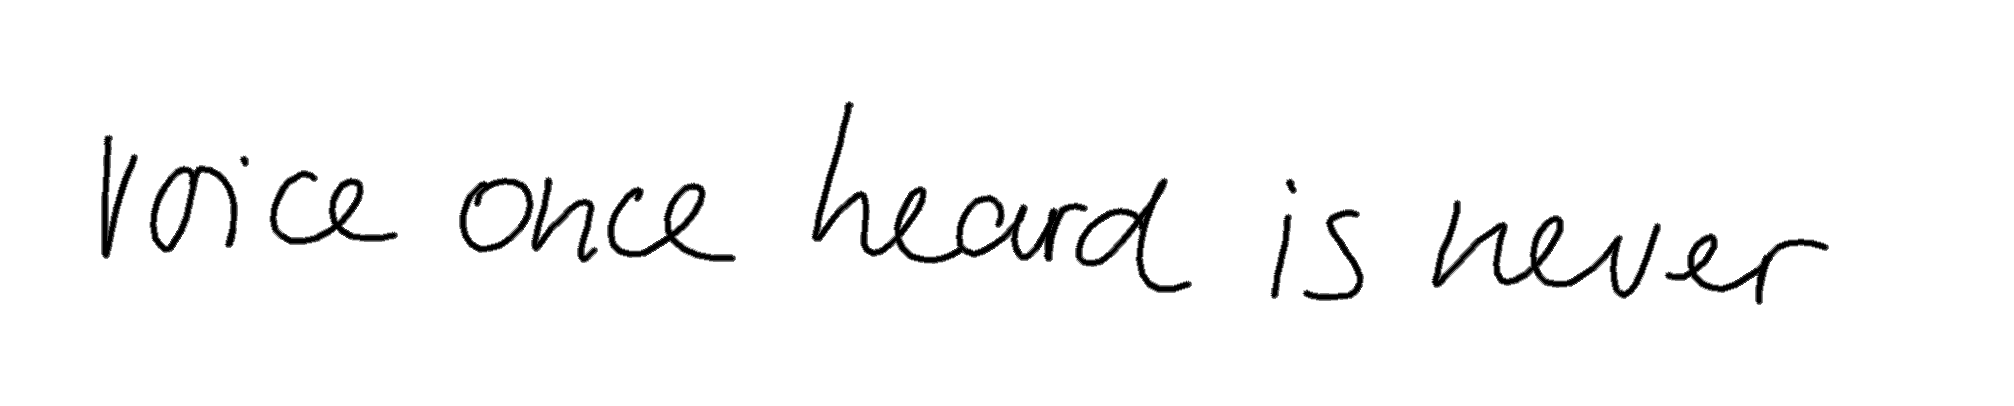 voice once heard is never